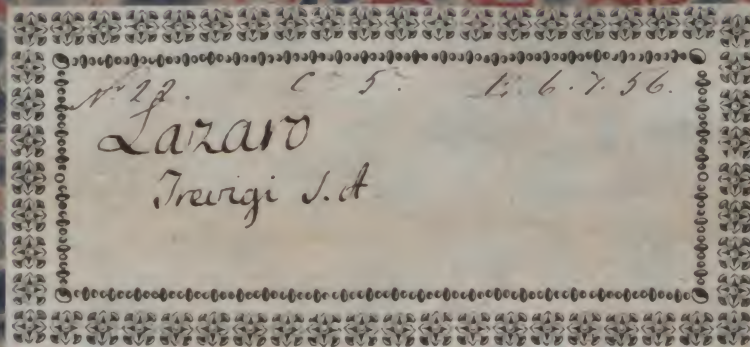 Nº 22. C 5. L: 6.7.56.
Lazaro
Trevigi S. A